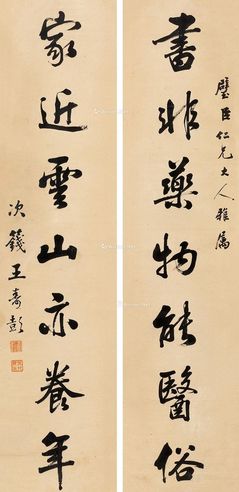 璧臣仁兄大人雅属
書非藥物能醫俗
家近雲山亦養年
次籛王壽彭